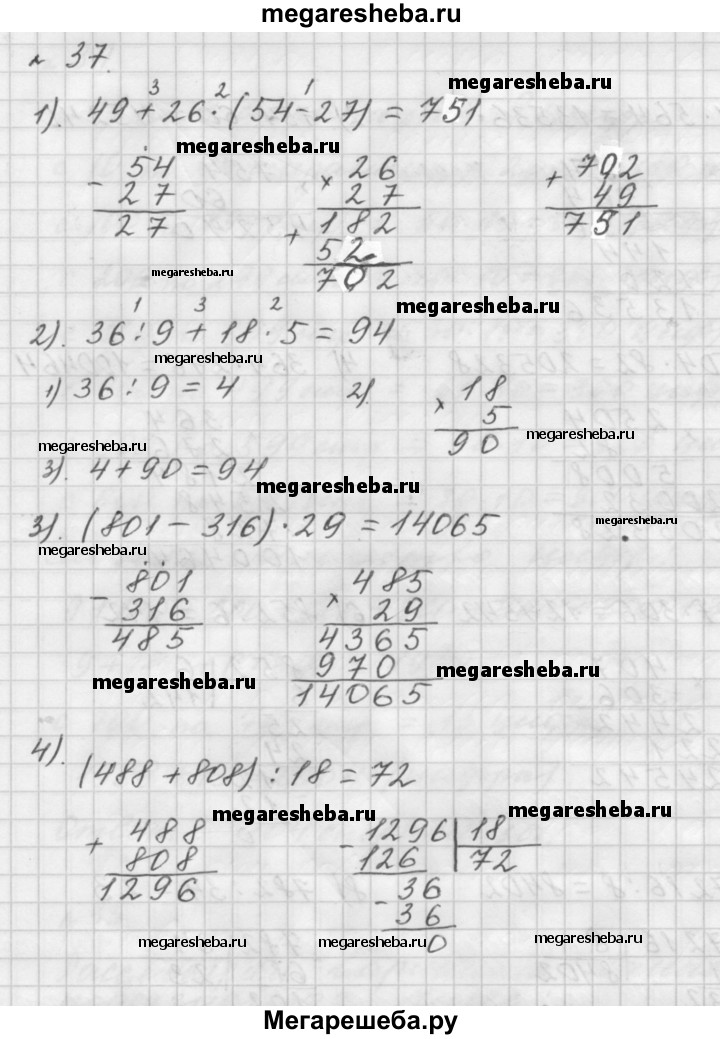 megaresheba.ru
№ 37.
3 2 1
1). 49 + 26 · (54 - 27) = 751
megaresheba.ru
megaresheba.ru
- 54
27
27
× 26
27
+ 182
52
702
+ 702
49
751
megaresheba.ru
megaresheba.ru
1 3 2
2). 36 : 9 + 18 · 5 = 94
megaresheba.ru
1) 36 : 9 = 4
2).
× 18
5
90
megaresheba.ru
megaresheba.ru
3). 4 + 90 = 94
megaresheba.ru
3). (801 - 316) · 29 = 14065
megaresheba.ru
megaresheba.ru
- 801
316
485
× 485
29
4365
970
14065
megaresheba.ru
megaresheba.ru
4).
(488 + 808) : 18 = 72
megaresheba.ru
megaresheba.ru
+ 488
808
1296
- 1296 | 18
126 72
36
- 36
0
megaresheba.ru
megaresheba.ru
megaresheba.ru
Мегарешеба.ру